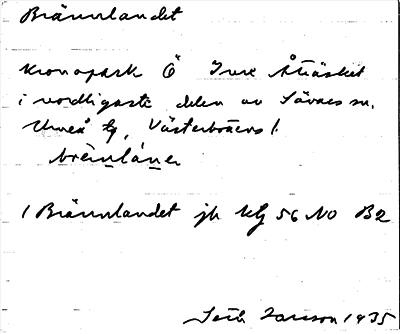 Brännlandet
Kronopark Ö Inre Åträsket
i nordligaste delen av Sävars sn.
Umeå tg, Västerbottens l.
bränlánda
1 Brännlandet jk Utg 56 NO B2
Seth Jansson 1935